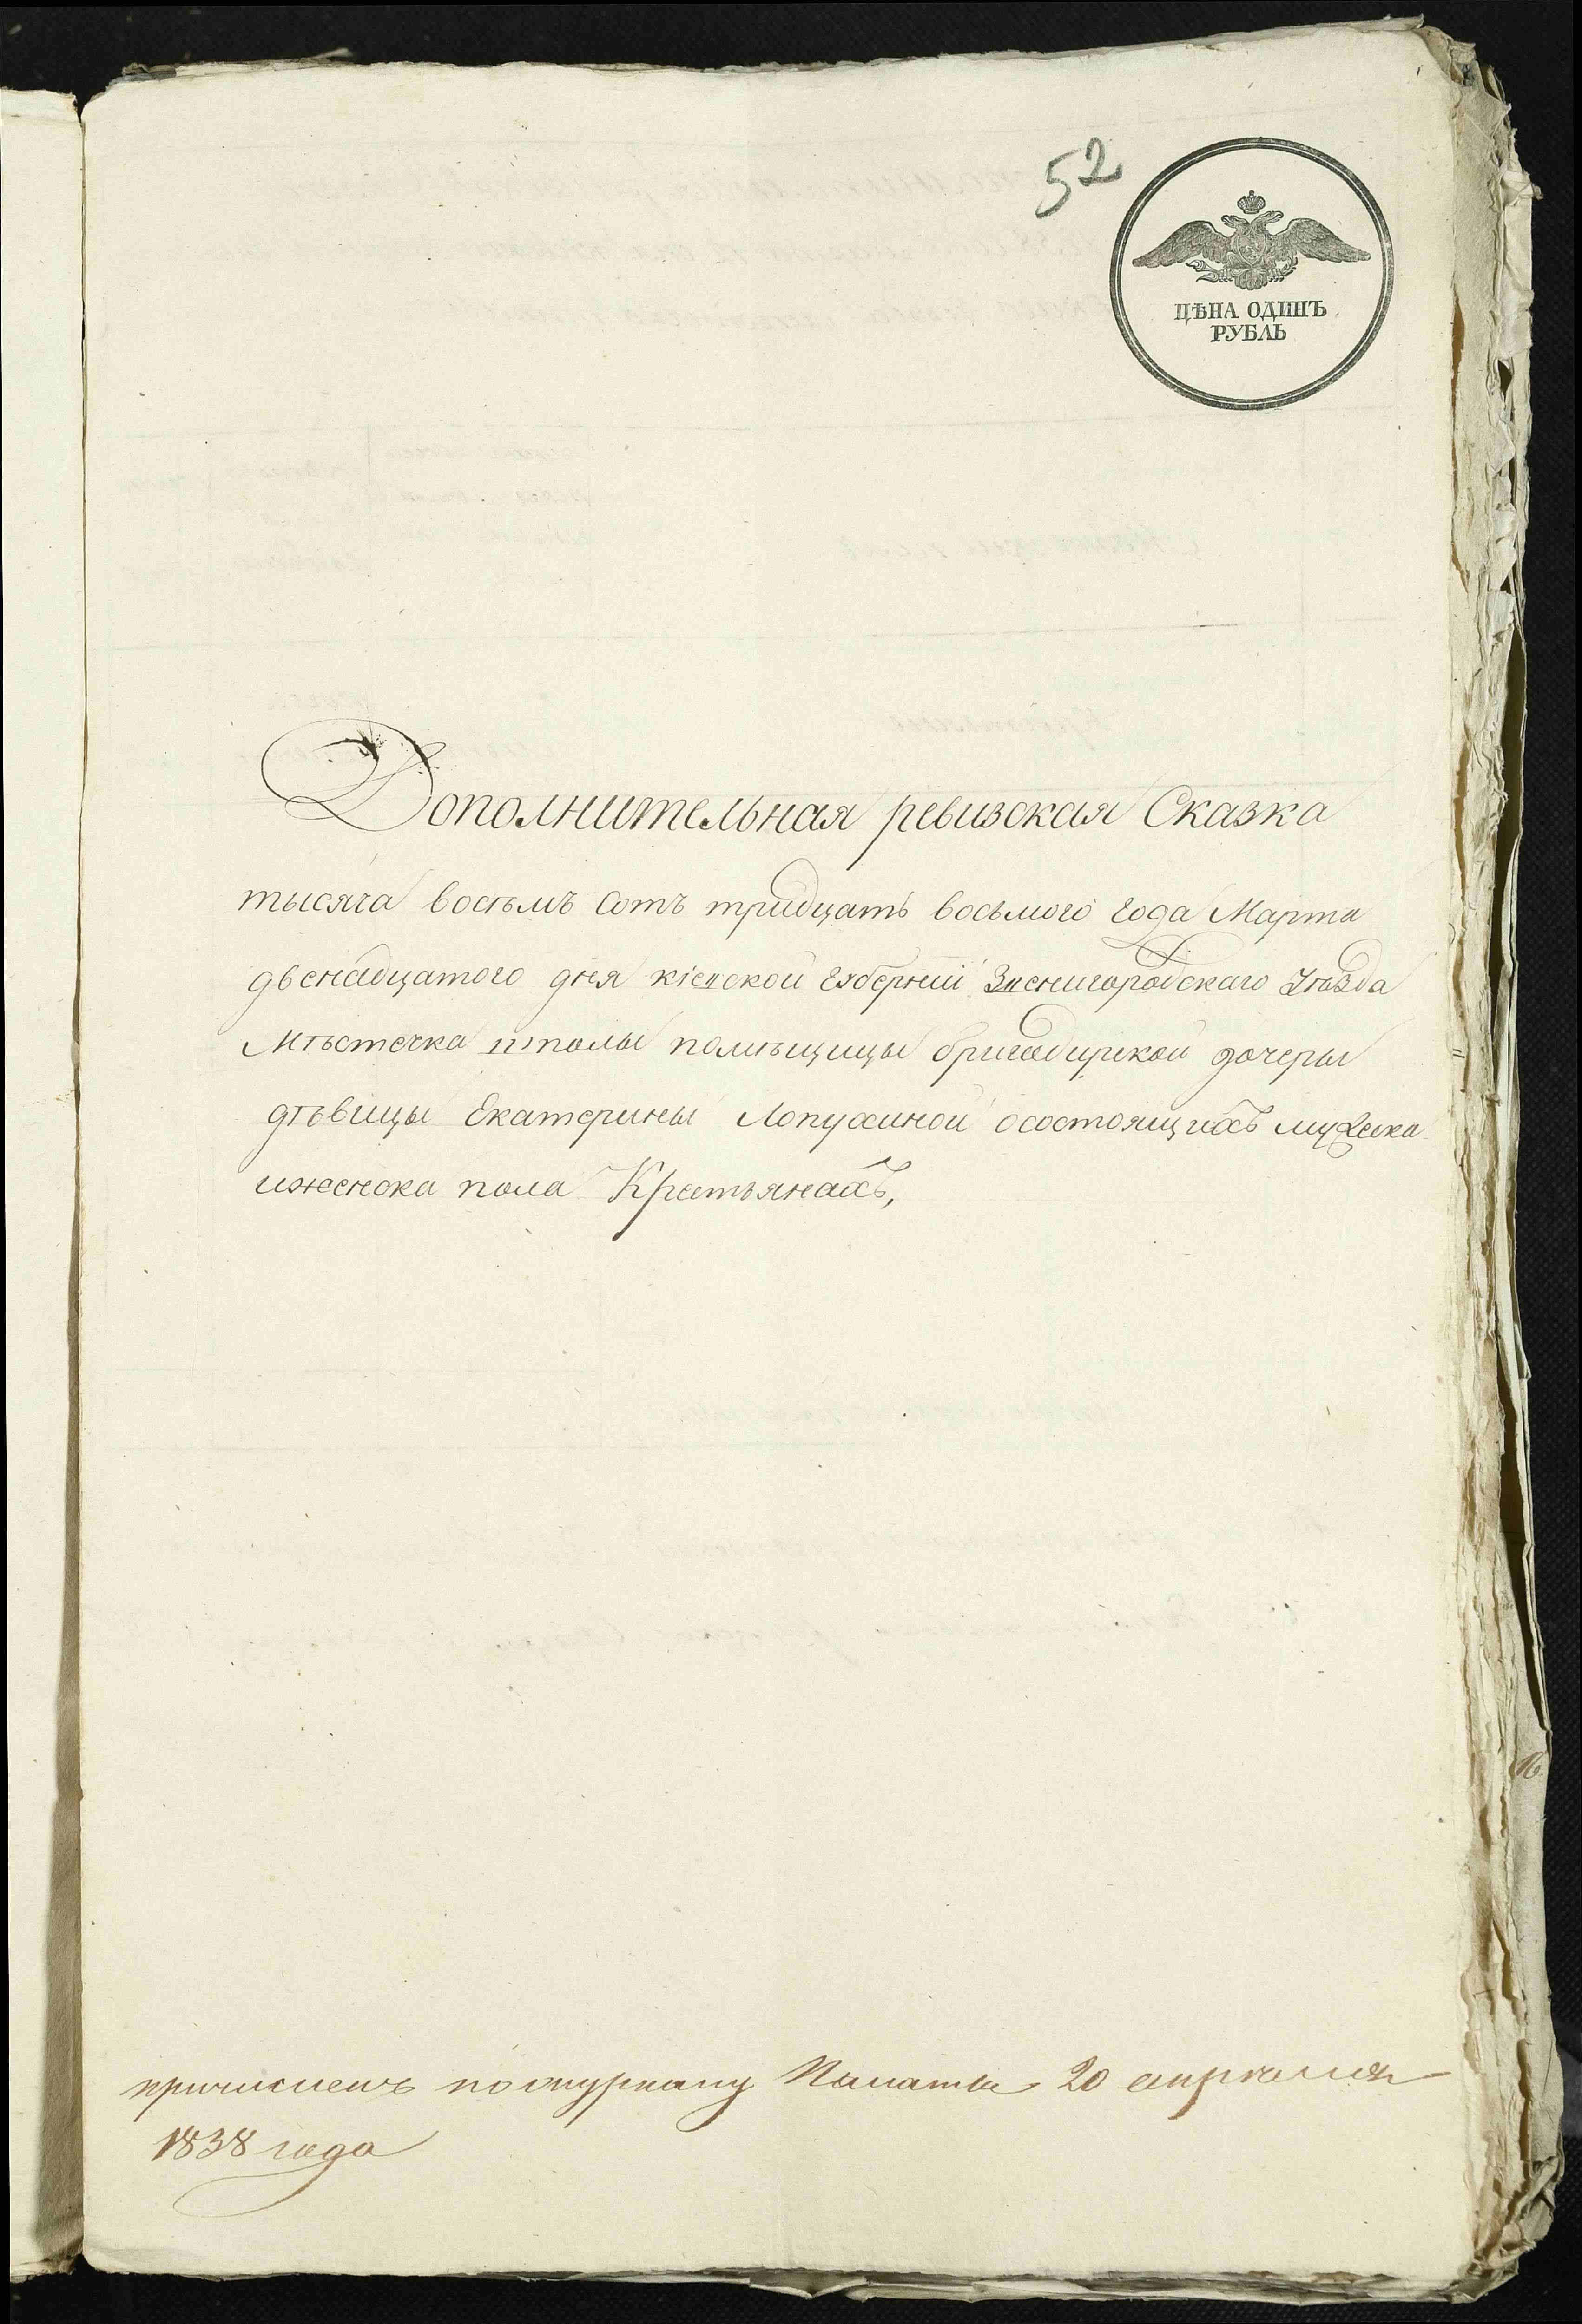 52
ЦѢНА ОДИНЪ
РУБЛЬ
Дополнительная ревизская Сказка
тысяча восьмъ сотъ тридцать восьмого года Марта
двенадцатого дня кіевской губерніи Звенигородскаго Уѣзда
Мѣстечка шполы помѣщицы бригадирской дочеры
дѣвицы Екатерины Лопухиной осостоящихъ мужеска
иженска пола Крестьянахъ,
причисленъ по журналу Палаты 20 апрѣля
1838 года